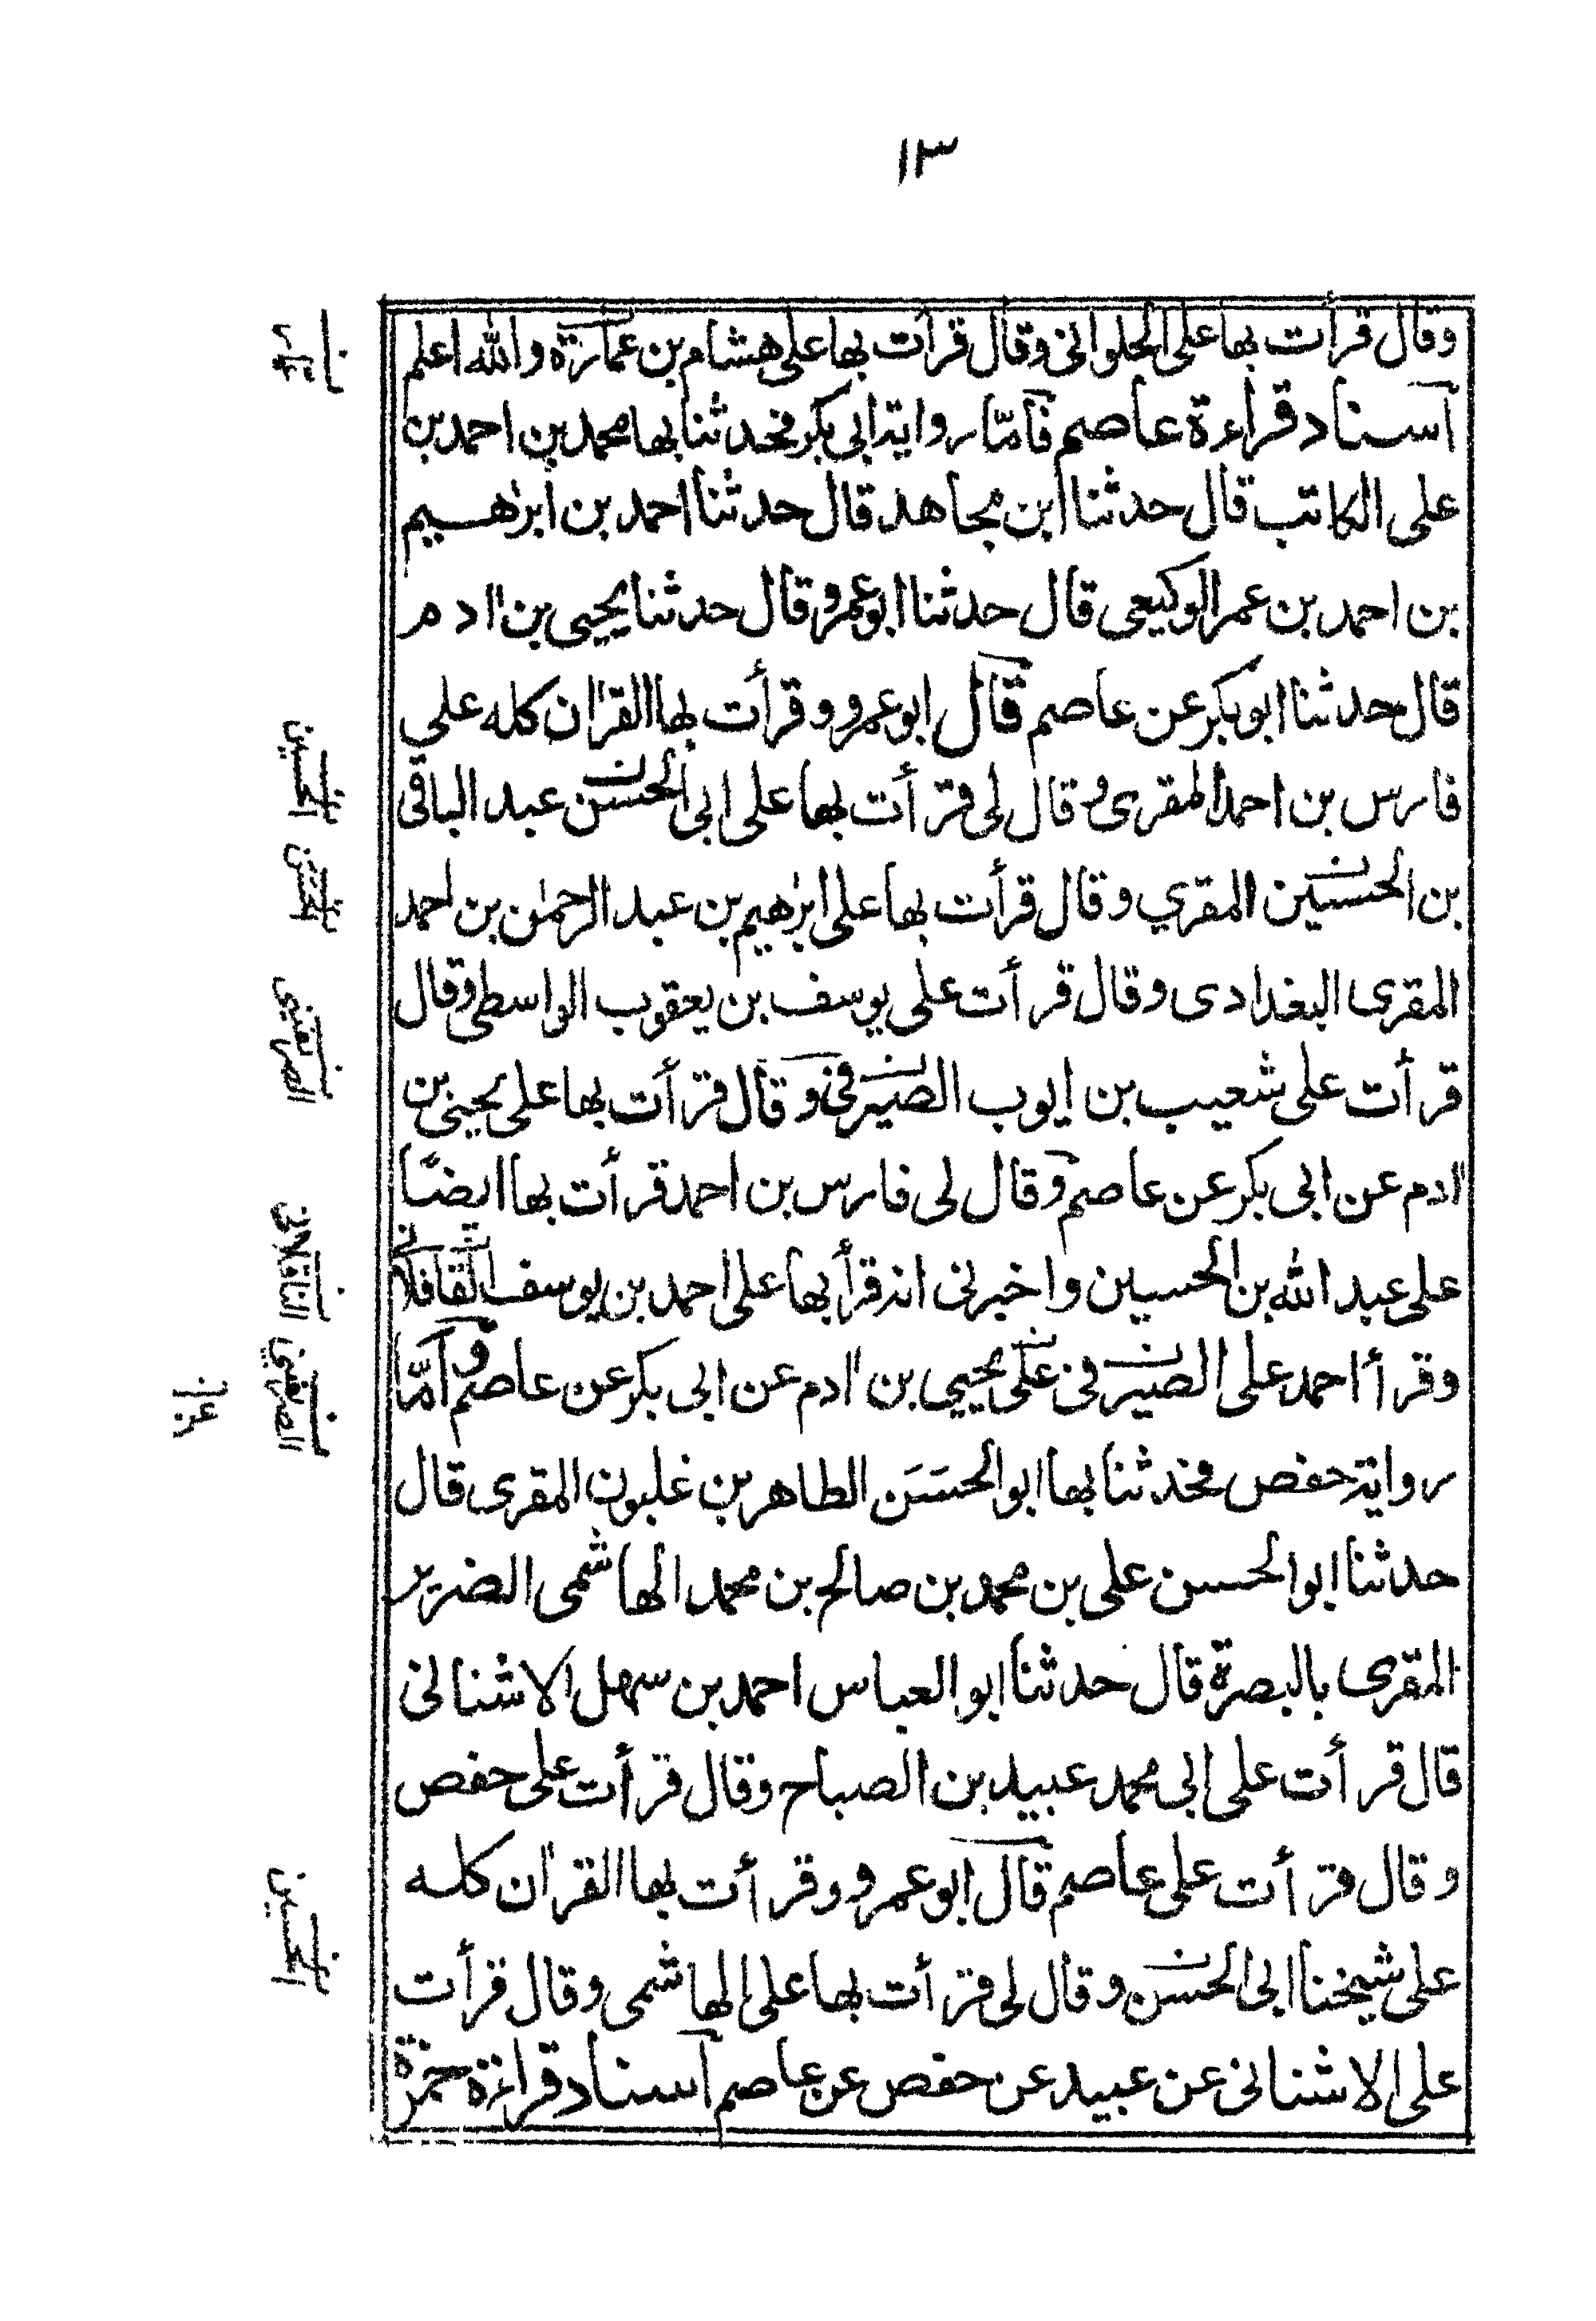 ١٣
وقال قرأت بها على الحلوانى وقال قرأت بها على هشام بن عمارة والله اعلم
اسناد قراءة عاصم فامّا رواية ابى بكر فحدثنا بها محمد بن احمد بن
على الكاتب قال حدثنا ابن مجاهد قال حدثنا احمد بن ابرٰهيم
بن احمد بن عمر الوكيعى قال حدثنا ابو عمرو قال حدثنا يحيى بن اٰدم
قال حدثنا ابو بكر عن عاصم قال ابو عمرو وقرأت بها القرٰان كله على
فارس بن احمد المقرى وقال لى قرأت بها على ابى الحسن عبد الباقى
بن الحسين المقري وقال قرأت بها على ابرٰهيم بن عبد الرحمٰن بن احمد
المقرى البغدادى وقال قرأت على يوسف بن يعقوب الواسطى وقال
قرأت على شعيب بن ايوب الصيرفى وقال قرأت بها على يحيى بن
اٰدم عن ابى بكر عن عاصم وقال لى فارس بن احمد قرأت بها ايضًا
على عبد الله بن الحسين واخبرنى انه قرأ بها على احمد بن يوسف القافلانى
وقرأ احمد على الصيرفى على يحيى بن اٰدم عن ابى بكر عن عاصم وامّا
رواية حفص فحدثنا بها ابو الحسَن الطاهر بن غلبون المقرى قال
حدثنا ابو الحسن على بن محمد بن صالح بن محمد الهاشمى الضرير
المقرى بالبصرة قال حدثنا ابو العباس احمد بن سهل الاشنانى
قال قرأت على ابى محمد عبيد بن الصباح وقال قرأت على حفص
وقال قرأت على عاصم قال ابو عمرو وقرأت بها القراٰن كله
على شيخنا ابى الحسن وقال لى قرأت بها على الهاشمى وقال قرأت
على الاشنانى عن عبيد عن حفص عن عاصم اسناد قراءة حمزة
الحسين